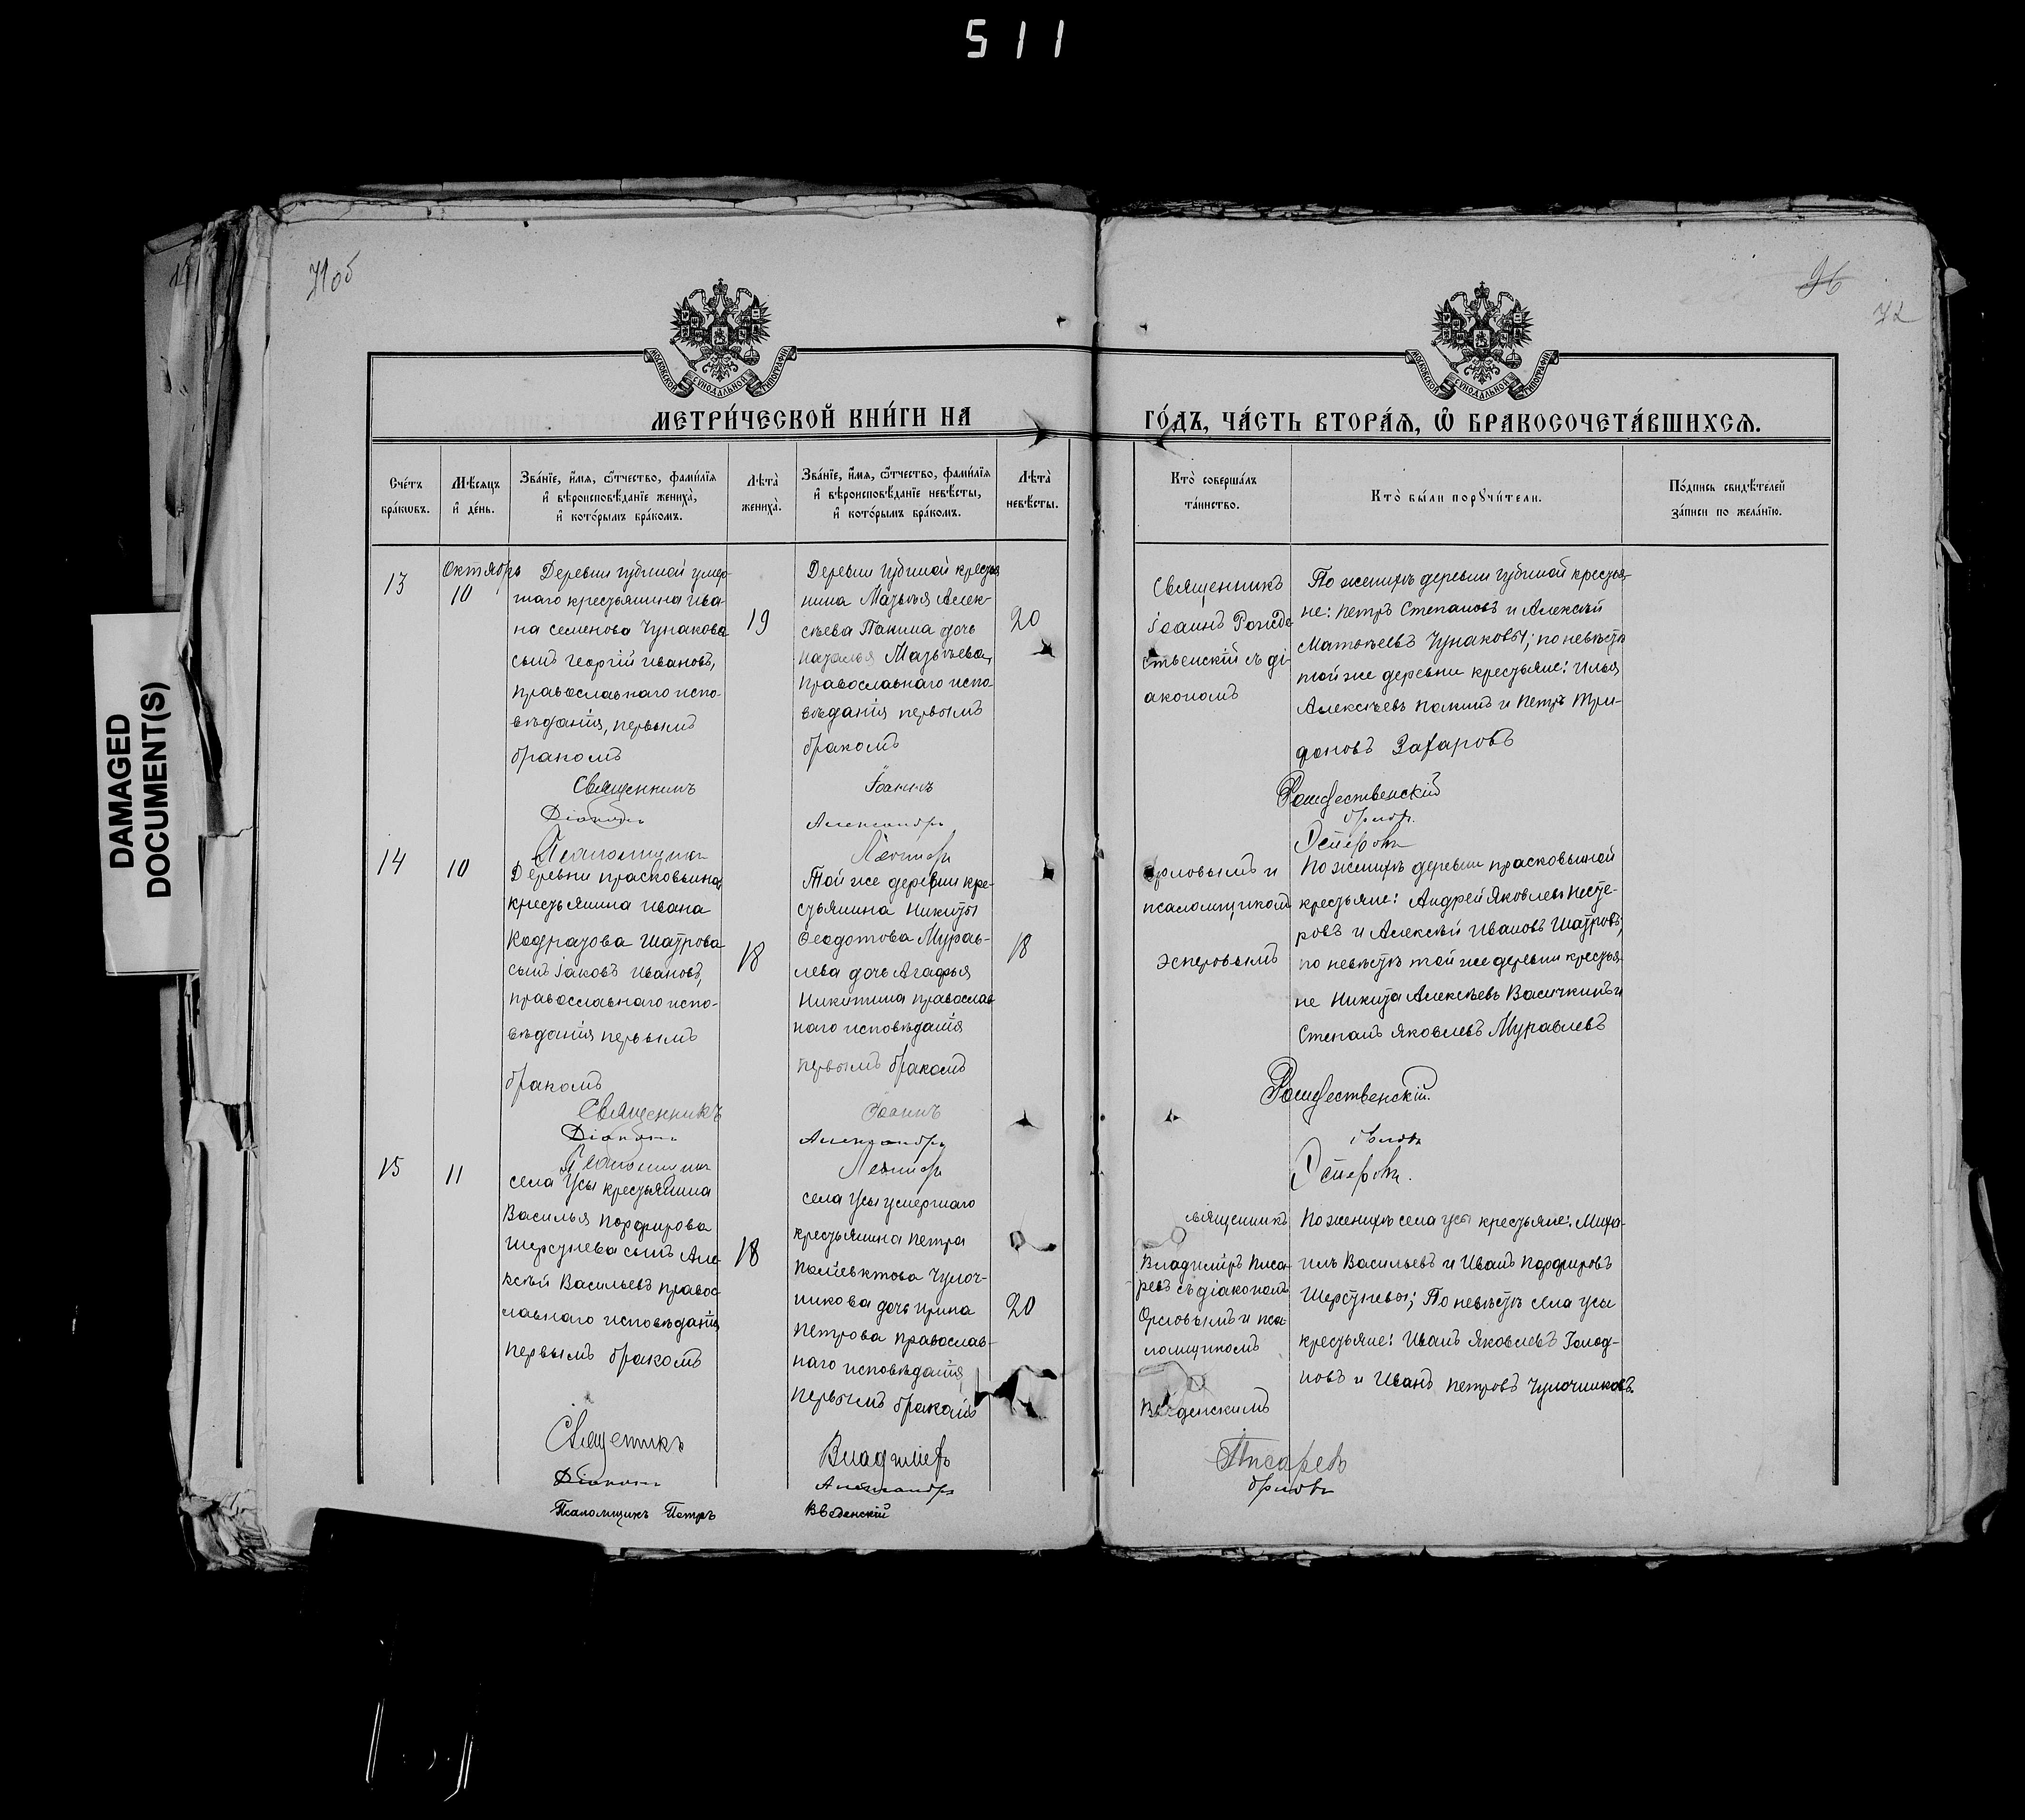 511
71 об
96
72
МОСКОВСКОЙ СѴНОДАЛЬНОЙ ТИПОГРАФІИ
МОСКОВСКОЙ СѴНОДАЛЬНОЙ ТИПОГРАФІИ
МЕТРИ́ЧЕСКОЙ КНИ́ГИ НА
ГО́ДЪ, ЧА́СТЬ ВТОРА́Ѧ, Ѽ БРАКОСОЧЕТА́ВШИХСѦ.
Сче́тъ
бра́кѡвъ.
Мѣ́сѧцъ
и҆ де́нь.
Зва́нїе, и҆́мѧ, ѻ҆́тчество, фами́лїѧ
и҆ вѣроисповѣ́данїе жениха̀,
и҆ кото́рымъ бра́комъ.
Лѣта̀
жениха̀.
Зва́нїе, и҆́мѧ, ѻ҆́тчество, фами́лїѧ
и҆ вѣроисповѣ́данїе невѣ́сты,
и҆ кото́рымъ бра́комъ.
Лѣта̀
невѣ́сты.
Кто̀ соверша́лъ
та́инство.
Кто̀ бы́ли порꙋчи́тели.
По́дпись свидѣ́телей
за́писи по жела́нїю.
13
Октябрь
10
Деревни Губиной умер-
шаго крестьянина Ива-
на Семенова Чунакова
сынъ Георгій Ивановъ,
православнаго испо-
вѣданія, первымъ
бракомъ
19
Деревни Губиной кресть-
нина Матвѣя Алек-
сѣева Панина дочь
Наталья Матвѣева,
православнаго испо-
вѣданія первымъ
бракомъ
20
Священникъ
Іоаннъ Рожде-
ственскій съ ді-
акономъ
По женихѣ деревни Губиной крестья-
не: Петръ Степановъ и Алексѣй
Матвѣевъ Чунаковы; по невѣстѣ
той же деревни крестьяне: Илья
Алексѣевъ Панинъ и Петръ Три-
фоновъ Захаровъ
Священникъ Іоаннъ Рождественскій
Діаконъ Александръ Орловъ.
Псаломщикъ Леонидъ Эсперовъ
14
10
Деревни Прасковьина
крестьянина Ивана
Кодратова Шатрова
сынъ Іаковъ Ивановъ,
православнаго испо-
вѣданія первымъ
бракомъ
18
Той же деревни кре-
стьянина Никиты
Ѳеодотова Мурав-
лева дочь Агафья
Никитина православ-
наго исповѣданія
первымъ бракомъ
18
Орловымъ и
псаломщикомъ
Эсперовымъ
По женихѣ деревни Прасковьиной
крестьяне: Андрей Яковлевъ Несте-
ровъ и Алексѣй Ивановъ Шатровъ;
по невѣстѣ той же деревни крестья-
не Никита Алексѣевъ Васичкинъ и
Степанъ Яковлевъ Муравлевъ
Священникъ Іоаннъ Рождественскій.
Діаконъ Александръ Орловъ
Псаломщикъ Леонидъ Эсперовъ.
15
11
Села Усы крестьянина
Василья Порфирова
Шерстнева сынъ Але-
ксѣй Васильевъ право-
славнаго исповѣданія
первымъ бракомъ
18
Села Усы умершаго
крестьянина Петра
Поліевктова Чулоч-
никова дочь Ирина
Петрова православ-
наго исповѣданія,
первымъ бракомъ
20
Священникъ
Владиміръ Писа-
ревъ съ діакономъ
Орловымъ и пса-
ломщикомъ
Введенскимъ
По женихѣ села Усы крестьяне: Миха-
илъ Васильевъ и Иванъ Порфировъ
Шерстневы; По невѣстѣ села Усы
крестьяне: Иванъ Яковлевъ Голод-
новъ и Иванъ Петровъ Чулочниковъ.
Священникъ Владиміръ Писаревъ
Діаконъ Александръ Орловъ
Псаломщикъ Петръ Введенскій
DAMAGED
DOCUMENT(S)